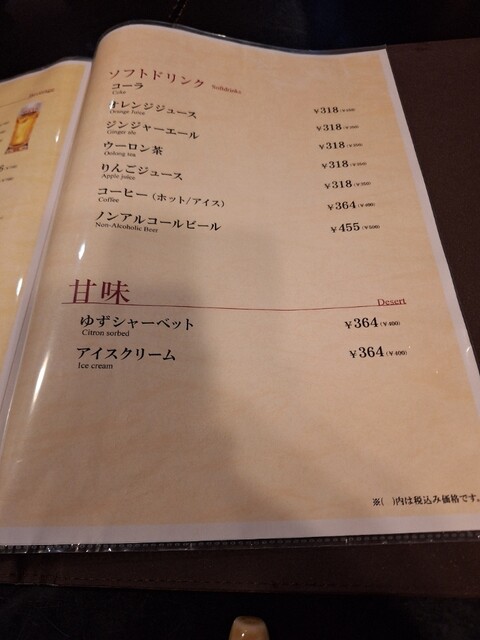 ソフトドリンク Softdrinks
コーラ ¥318
Coke
オレンジジュース ¥318
Orange Juice
ジンジャーエール ¥318
Ginger ale
ウーロン茶 ¥318
Oolong tea
りんごジュース ¥318
Apple juice
コーヒー（ホット/アイス） ¥364(¥400)
Coffee
ノンアルコールビール ¥455(¥500)
Non-Alcoholic Beer
甘味 Desert
ゆずシャーベット ¥364(¥400)
Citron sorbed
アイスクリーム ¥364(¥400)
Ice cream
※(　)内は税込み価格です。